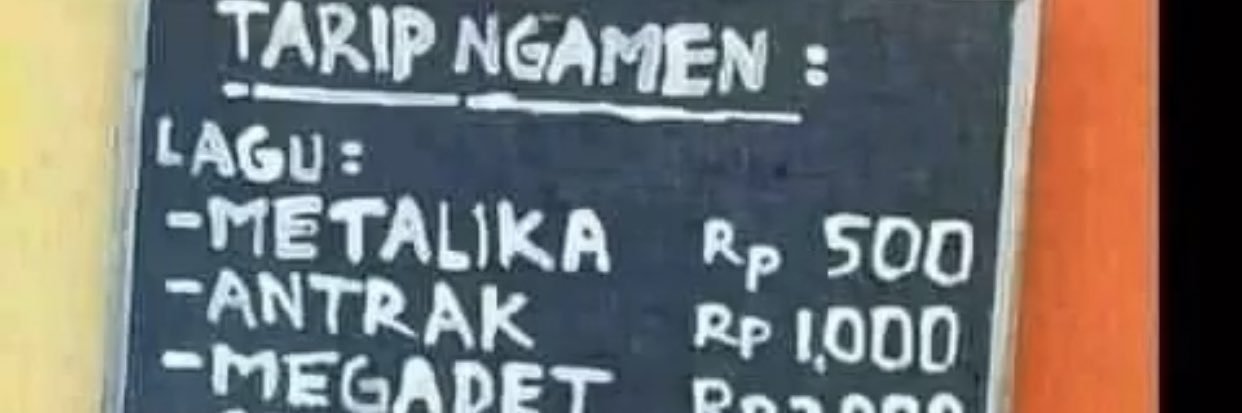 TARIP NGAMEN :
LAGU :
-METALIKA Rp 500
-ANTRAK Rp 1.000
-MEGADET